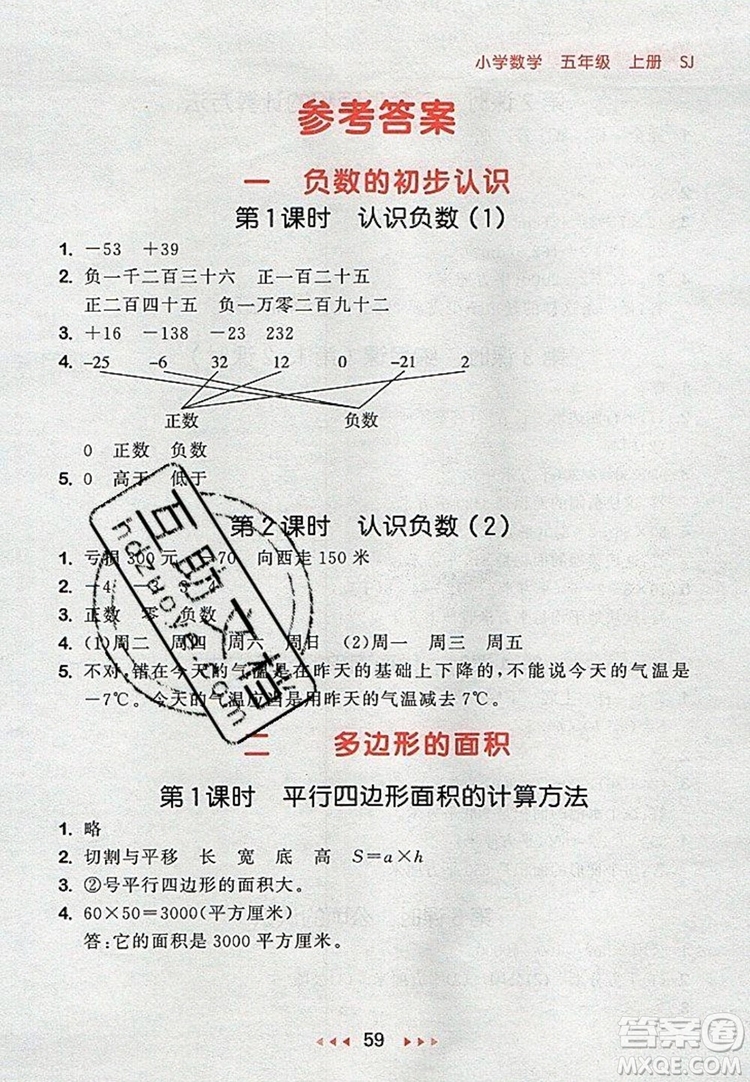 小学数学 五年级 上册 SJ
参考答案
一 负数的初步认识
第1课时 认识负数(1)
1. －53 ＋39
2. 负一千二百三十六 正一百二十五
正二百四十五 负一万零二百九十二
3. ＋16 －138 －23 232
4. －25 －6 32 12 0 －21 2
正数 负数
0 正数 负数
5. 0 高于 低于
第2课时 认识负数(2)
1. 亏损300元 －70 向西走150米
2. －4
3. 正数 零 负数
4. (1)周二 周四 周六 周日 (2)周一 周三 周五
5. 不对,错在今天的气温是在昨天的基础上下降的,不能说今天的气温是
－7℃。今天的气温应当是用昨天的气温减去7℃。
二 多边形的面积
第1课时 平行四边形面积的计算方法
1. 略
2. 切割与平移 长 宽 底 高 S＝a×h
3. ②号平行四边形的面积大。
4. 60×50＝3000(平方厘米)
答:它的面积是3000平方厘米。
59
互助文档
hdzuoye.com
答案圈
MXQE.COM